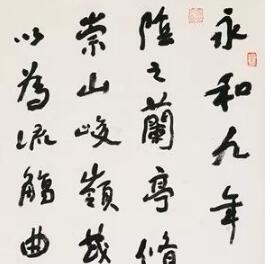 永和九年
陰之蘭亭脩
崇山峻嶺茂
以為流觴曲